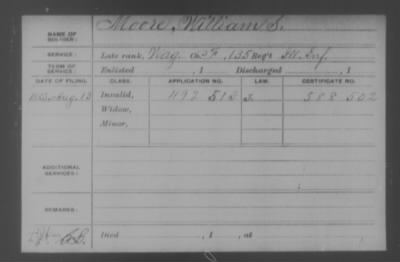 NAME OF SOLDIER: Moore, William S.
SERVICE: Late rank, Wag. Co. F, 135 Reg't Ill. Inf.
TERM OF SERVICE: Enlisted , 1 Discharged , 1
DATE OF FILING. CLASS. APPLICATION NO. LAW. CERTIFICATE NO.
Aug. 13 Invalid, 492 512 588 502
Widow,
Minor,
ADDITIONAL SERVICES:
REMARKS:
Died , 1 , at